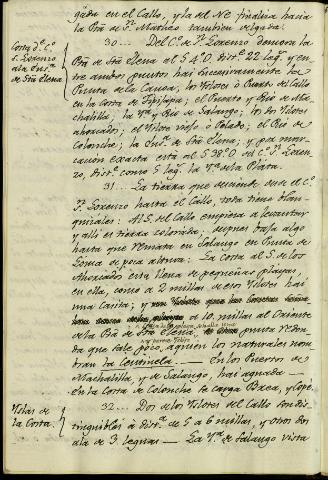 gada en el Callo, y la del NE finaliza hacia
la Pta de Sn Matheo tambien delgada.
30... Del Co de Sn Lorenzo demora la
Costa del Co
Sn Lorenzo
a la Pta de
Sta Elena
Pta de Sta Elena al S 4° O distte 22 leg. y en-
tre ambos puntos hai succesivamente la
Punta de la Canoa, los Islotes o Puerto del Callo
en la Costa de Jipijapa; el Puerto y Rio de Ma-
chalilla; la Ysa y Rio de Salango; los dos Islotes
ahorcados; el Islote viejo o Pelado; el Rio de
Colonche; la Pta de Sta Elena; y por mar-
cacion exacta está al S 38° O del Co Sn Loren-
zo, distte como 5 leg. la Ysa de la Plata.
31... La tierra que desciende desde el Co
Sn Lorenzo hasta el Callo, toda tiene Blan-
quizales: Al S. del Callo empieza a levantar
y alli es tierra colorada; despues baja algo
hasta que remata en Salango en Punta de
Loma de poca altura: La Costa al S. de los
Ahorcados está llena de pequeñas playas,
en ella, como a 2 millas de esos Islotes hai
una Casita; y
de 10 millas al Oriente
de la Pta de Sta Elena, punta reson-
da que sale poco, a quien los naturales nom-
bran la Centinela — En los Puertos de
Machalilla, y de Salango, hai aguada —
en la Costa de Colonche se carga Brea, y Cope.
Islas de
la Costa.
32... Dos de los Islotes del Callo son dis-
tinguibles a distª de 5 a 6 millas, y otros dos
a la de 3 leguas — La Ysa de Salango vista